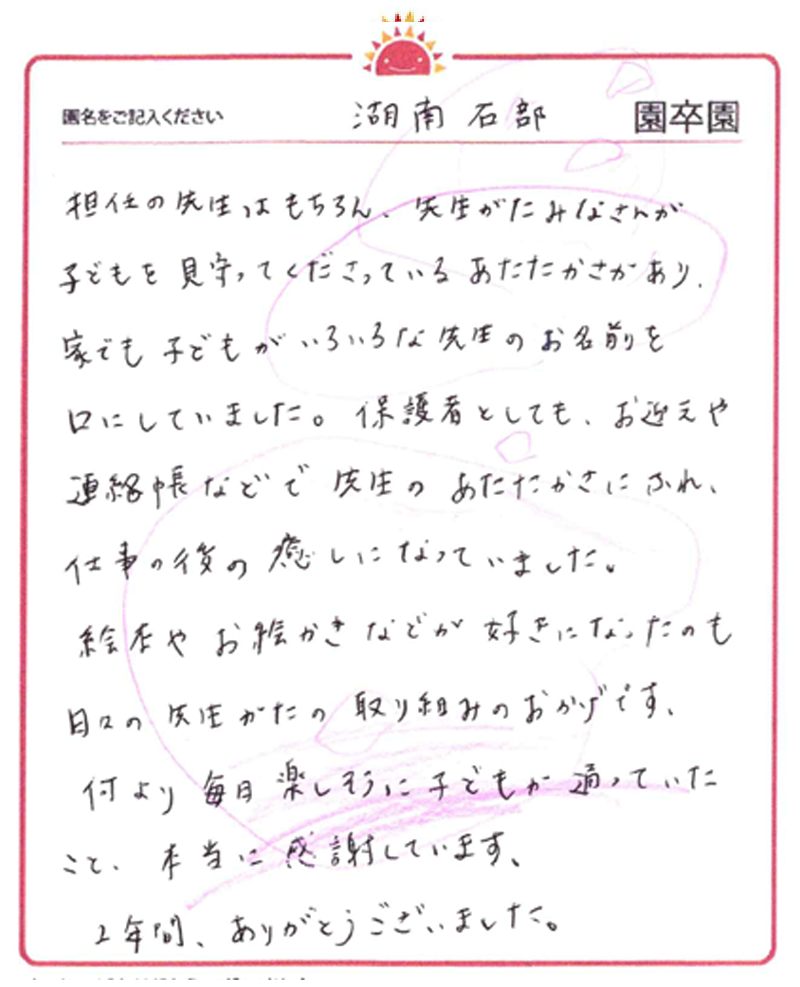 園名をご記入ください 湖南石部 園卒園
担任の先生はもちろん、先生がたみなさんが
子どもを見守ってくださっているあたたかさがあり、
家でも子どもがいろいろな先生のお名前を
口にしていました。保護者としても、お迎えや
連絡帳などで先生のあたたかさにふれ、
仕事の後の癒しになっていました。
絵本やお絵かきなどが好きになったのも
日々の先生がたの取り組みのおかげです。
何より毎日楽しそうに子どもが通っていた
こと、本当に感謝しています。
2年間、ありがとうございました。